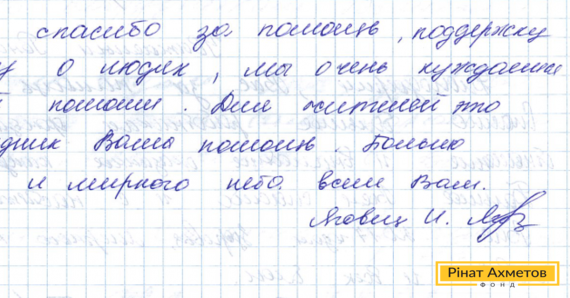 спасибо за помощь, поддержку
у о людях, мы очень нуждаемся
й помощи. Для жителей это
дник Ваша помощь. Только
и мирного неба всем Вам.
Яговец И.
Рінат Ахметов
ФОНД